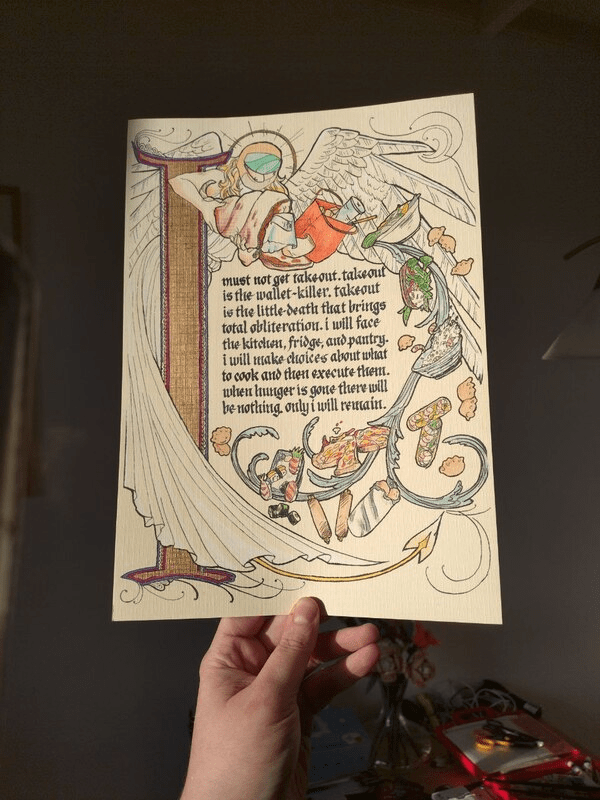 I
must not get takeout. takeout
is the wallet-killer. takeout
is the little-death that brings
total obliteration. i will face
the kitchen, fridge, and pantry.
i will make choices about what
to cook and then execute them.
when hunger is gone there will
be nothing. only i will remain.